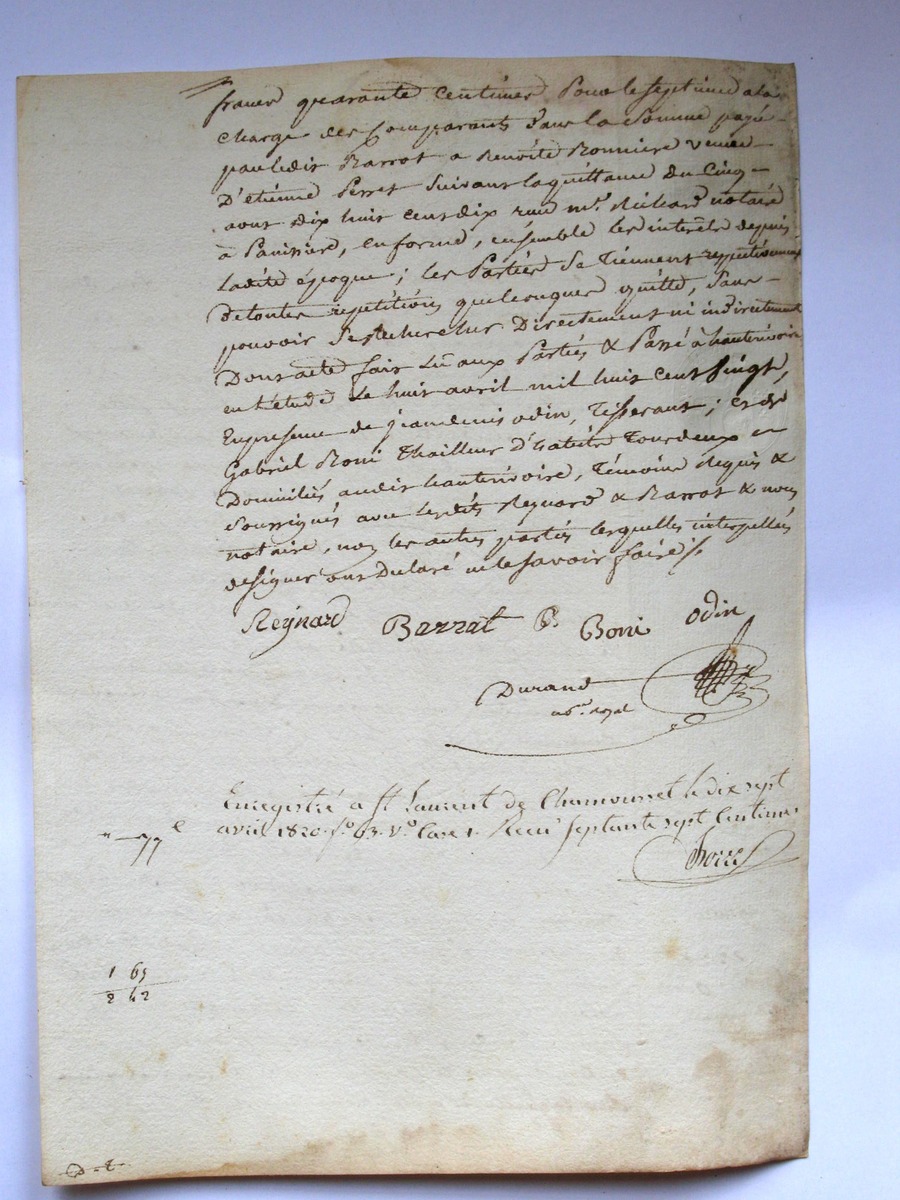 francs quarante centimes pour le septieme a la
charge des Comparants dans la somme payé
par ledit Barrat a Benoite Bonniere veuve
D'etienne Perret suivant la quittance du Cinq
aout dix huit cent dix reçu me. Richard notaire
à Panissiere, en forme, ensemble les interêts depuis
Ladite époque; les Parties se Tiennent respectivement
de toutes repétitions quelconques quitte, sans
pouvoir se Rechercher Directement ni indirectement
Dont acte fait Lû aux Parties & Passé à hauterivoire
en L'étude Le huit avril mil huit cent Vingt,
En presence de jean denis odin, Tisserant; et de
Gabriel Boni Thailleur D'habits Tous deux
Domiciliés audit hauterivoire, Témoins Requis &
Soussignés avec lesdits Reynard & Barrat & nous
notaire, non les autres parties lesquelles interpellées
de signer ont Declaré ne le savoir faire ./.
Reynard Barrat B Boni odin
Durand
nore. royal
Enregistré a St Laurent de Chamousset le dix sept
avril 1820. fo. 63. Vo. Case 1. Recu septante sept Centimes
" — 77 c
1 65
2 42